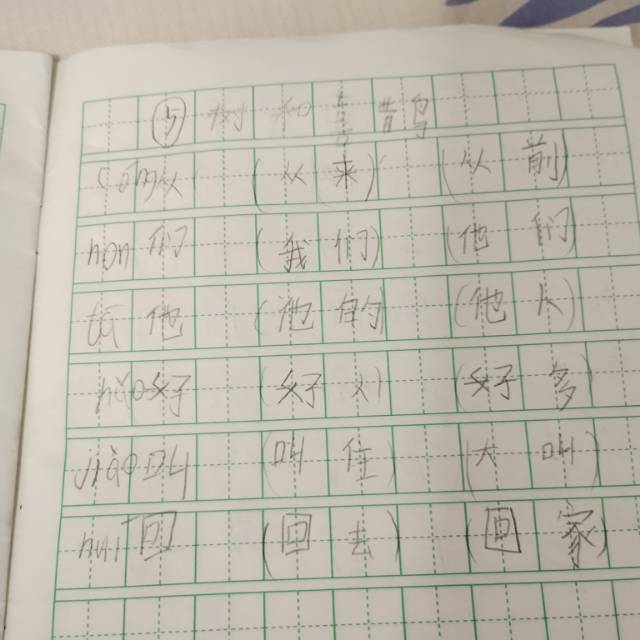 ⑤ 树和喜鹊
cóng从 (从来) (从前)
men们 (我们) (他们)
tā他 (他的) (他人)
hǎo好 (好人) (好多)
jiào叫 (叫住) (大叫)
huí回 (回去) (回家)